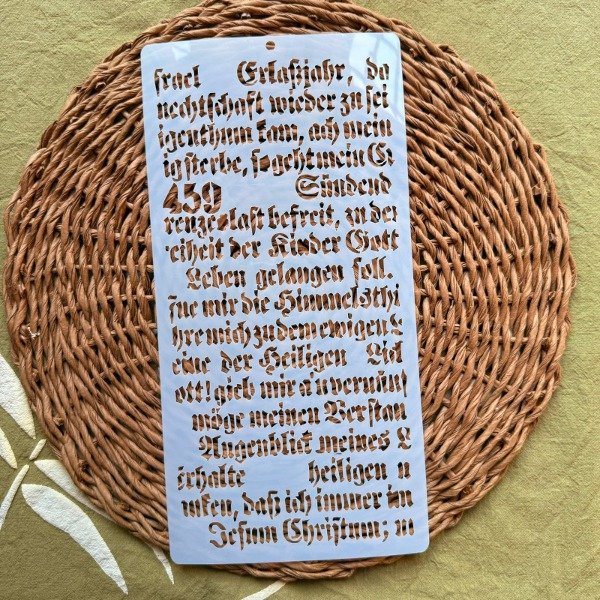 srael Erlaßjahr, da
nechtschaft wieder zu sei
igenthum kam, ach mein
ig sterbe, so geht mein G
459 Sündend
reuzeslast befreit, zu der
reiheit der Kinder Gott
Leben gelangen soll.
fne mir die Himmelsthü
hre mich zu dem ewigen L
eine der Heiligen Lid
ott! gieb mir a'u vernünf
möge meinen Verstan
Augenblick meines L
erhalte heiligen u
unken, daß ich immer in
Jesum Christum; w